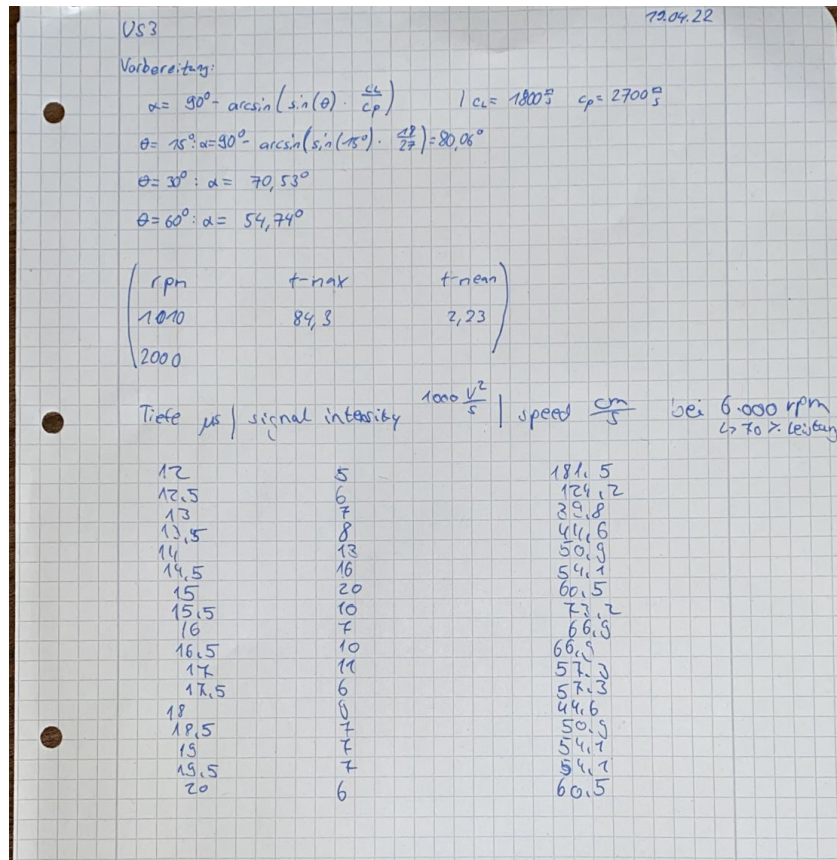 19.04.22
US3
Vorbereitung:
α = 90° - arcsin(sin(θ) · cL/cp) | cL = 1800 m/s cp = 2700 m/s
θ = 15°: α = 90° - arcsin(sin(15°) · 18/27) = 80,06°
θ = 30°: α = 70,53°
θ = 60°: α = 54,74°
rpm f-max f-mean
1010 84,3 2,23
2000
Tiefe µs | signal intensity 1000 V²/s | speed cm/s bei 6.000 rpm
↳ 70 % Leistung
12 5 181,5
12,5 6 124,2
13 7 39,8
13,5 8 44,6
14 13 50,9
14,5 16 54,1
15 20 60,5
15,5 10 73,2
16 7 66,9
16,5 10 66,9
17 11 57,3
17,5 6 57,3
18 44,6
18,5 7 50,9
19 7 54,1
19,5 7 54,1
20 6 60,5